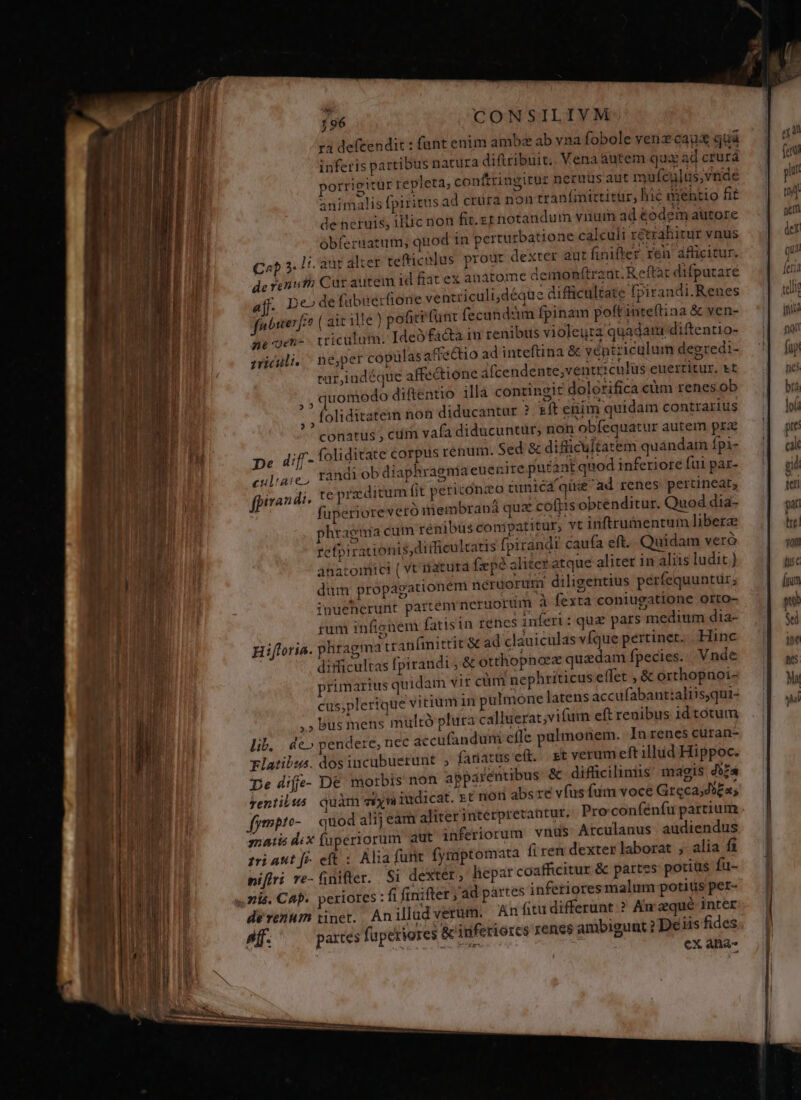 196 CONSILIVM
ra deſcendit : ſunt enim ambæ ab vna ſobole venæ cauæ quâ
inferis partibus natura diſtribuit. Vena autem quæ ad crura
porrigitur repleta, conſtringitur neruus aut muſculus, vnde
animalis ſpiritus ad crura non tranſmittitur, hîc mentio fit
de neruis, illic non fit. ET notandum vnum ad eodem autore
obſeruatum, quod in perturbatione calculi retrahitur vnus
Cap 3. li. aut alter teſticulus prout dexter aut ſiniſter ren afficitur.
de renum Cur autem id fiat ex anatome demonſtrant. Reſtat diſputare
aff. De de ſubuerſione ventriculi, déque difficultate ſpirandi. Renes
ſubuerſio ( ait ille ) poſiti ſunt ſecundùm ſpinam poſt inteſtina & ven-
ne ven- triculum. Ideò facta in renibus violenta quadam diſtentio-
triculi. ne, per copulas affectio ad inteſtina & ventriculum degredi-
tur, indéque affectione aſcendente, ventriculus euertitur. ET
,, quomodo diſtentio illa contingit dolorifica cùm renes ob
,, ſoliditatem non diducantur ? EST enim quidam contrarius
conatus, cùm vaſa diducuntur, non obſequatur autem præ
De diff- ſoliditate corpus renum. Sed & difficultatem quandam ſpi-
cultate randi ob diaphragma euenire putant quod inferiore ſui par-
ſpirandi. te præditum ſit peritonæo tunicâ quæ ad renes pertineat,
ſuperiore verò membranâ quæ coſtis obtenditur. Quod dia-
phragma cum renibus compatitur, vt inſtrumentum liberæ
reſpirationis, difficultatis ſpirandi cauſa eſt. Quidam verò
anatomici ( vt natura ſæpè aliter atque aliter in aliis ludit )
dum propagationem neruorum diligentius perſequuntur,
inuenerunt partem neruorum à ſexta coniugatione orto-
rum inſignem ſatis in renes inferi : quæ pars medium dia-
Hiſtoria. phragma tranſmittit & ad clauiculas vſque pertinet. Hinc
difficultas ſpirandi, & orthopnoeæ quædam ſpecies. Vnde
primarius quidam vir cùm nephriticus eſſet, & orthopnoi-
cus, plerique vitium in pulmone latens accuſabant: aliis, qui-
,, bus mens multò plura calluerat, viſum eſt renibus id totum
lib. de pendere, nec accuſandum eſſe pulmonem. In renes curan-
Flatibus. dos incubuerunt, ſanatus eſt. ET verum eſt illud Hippoc.
De diffe- De morbis non apparentibus & difficilimis magis
rentibus quàm iudicat. ET non abs re vſus ſum voce Græca,
ſympto- quod alij eam aliter interpretantur. Pro conſenſu partium
matis dex ſuperiorum aut inferiorum vnus Arculanus audiendus
tri aut ſi- eſt : Alia ſunt ſymptomata ſi ren dexter laborat, alia ſi
niſtri re- ſiniſter. Si dexter, hepar coafficitur & partes potiùs ſu-
nis. Cap. periores : ſi ſiniſter, ad partes inferiores malum potiùs per-
de renum tinet. An illud verum. An ſitu differunt ? An æquè inter
aff. partes ſuperiores & inferiores renes ambigunt ? De iis fides
ex ana-